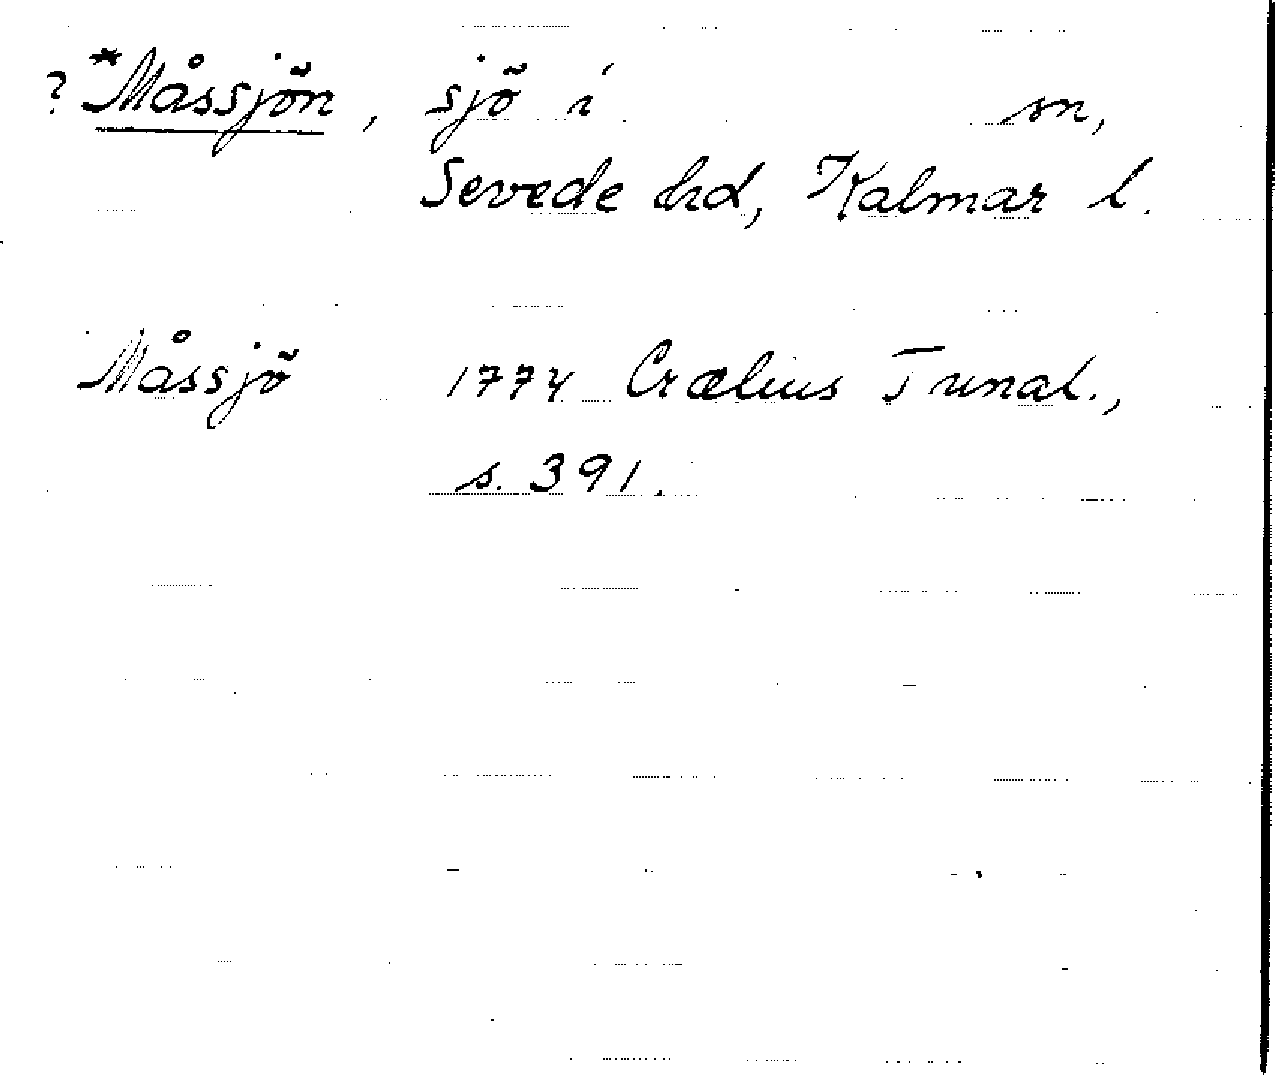 ? *Måssjön, sjö i sn,
Sevede hd, Kalmar l.
Måssjö 1774 Crælius Tunal.,
s. 391.